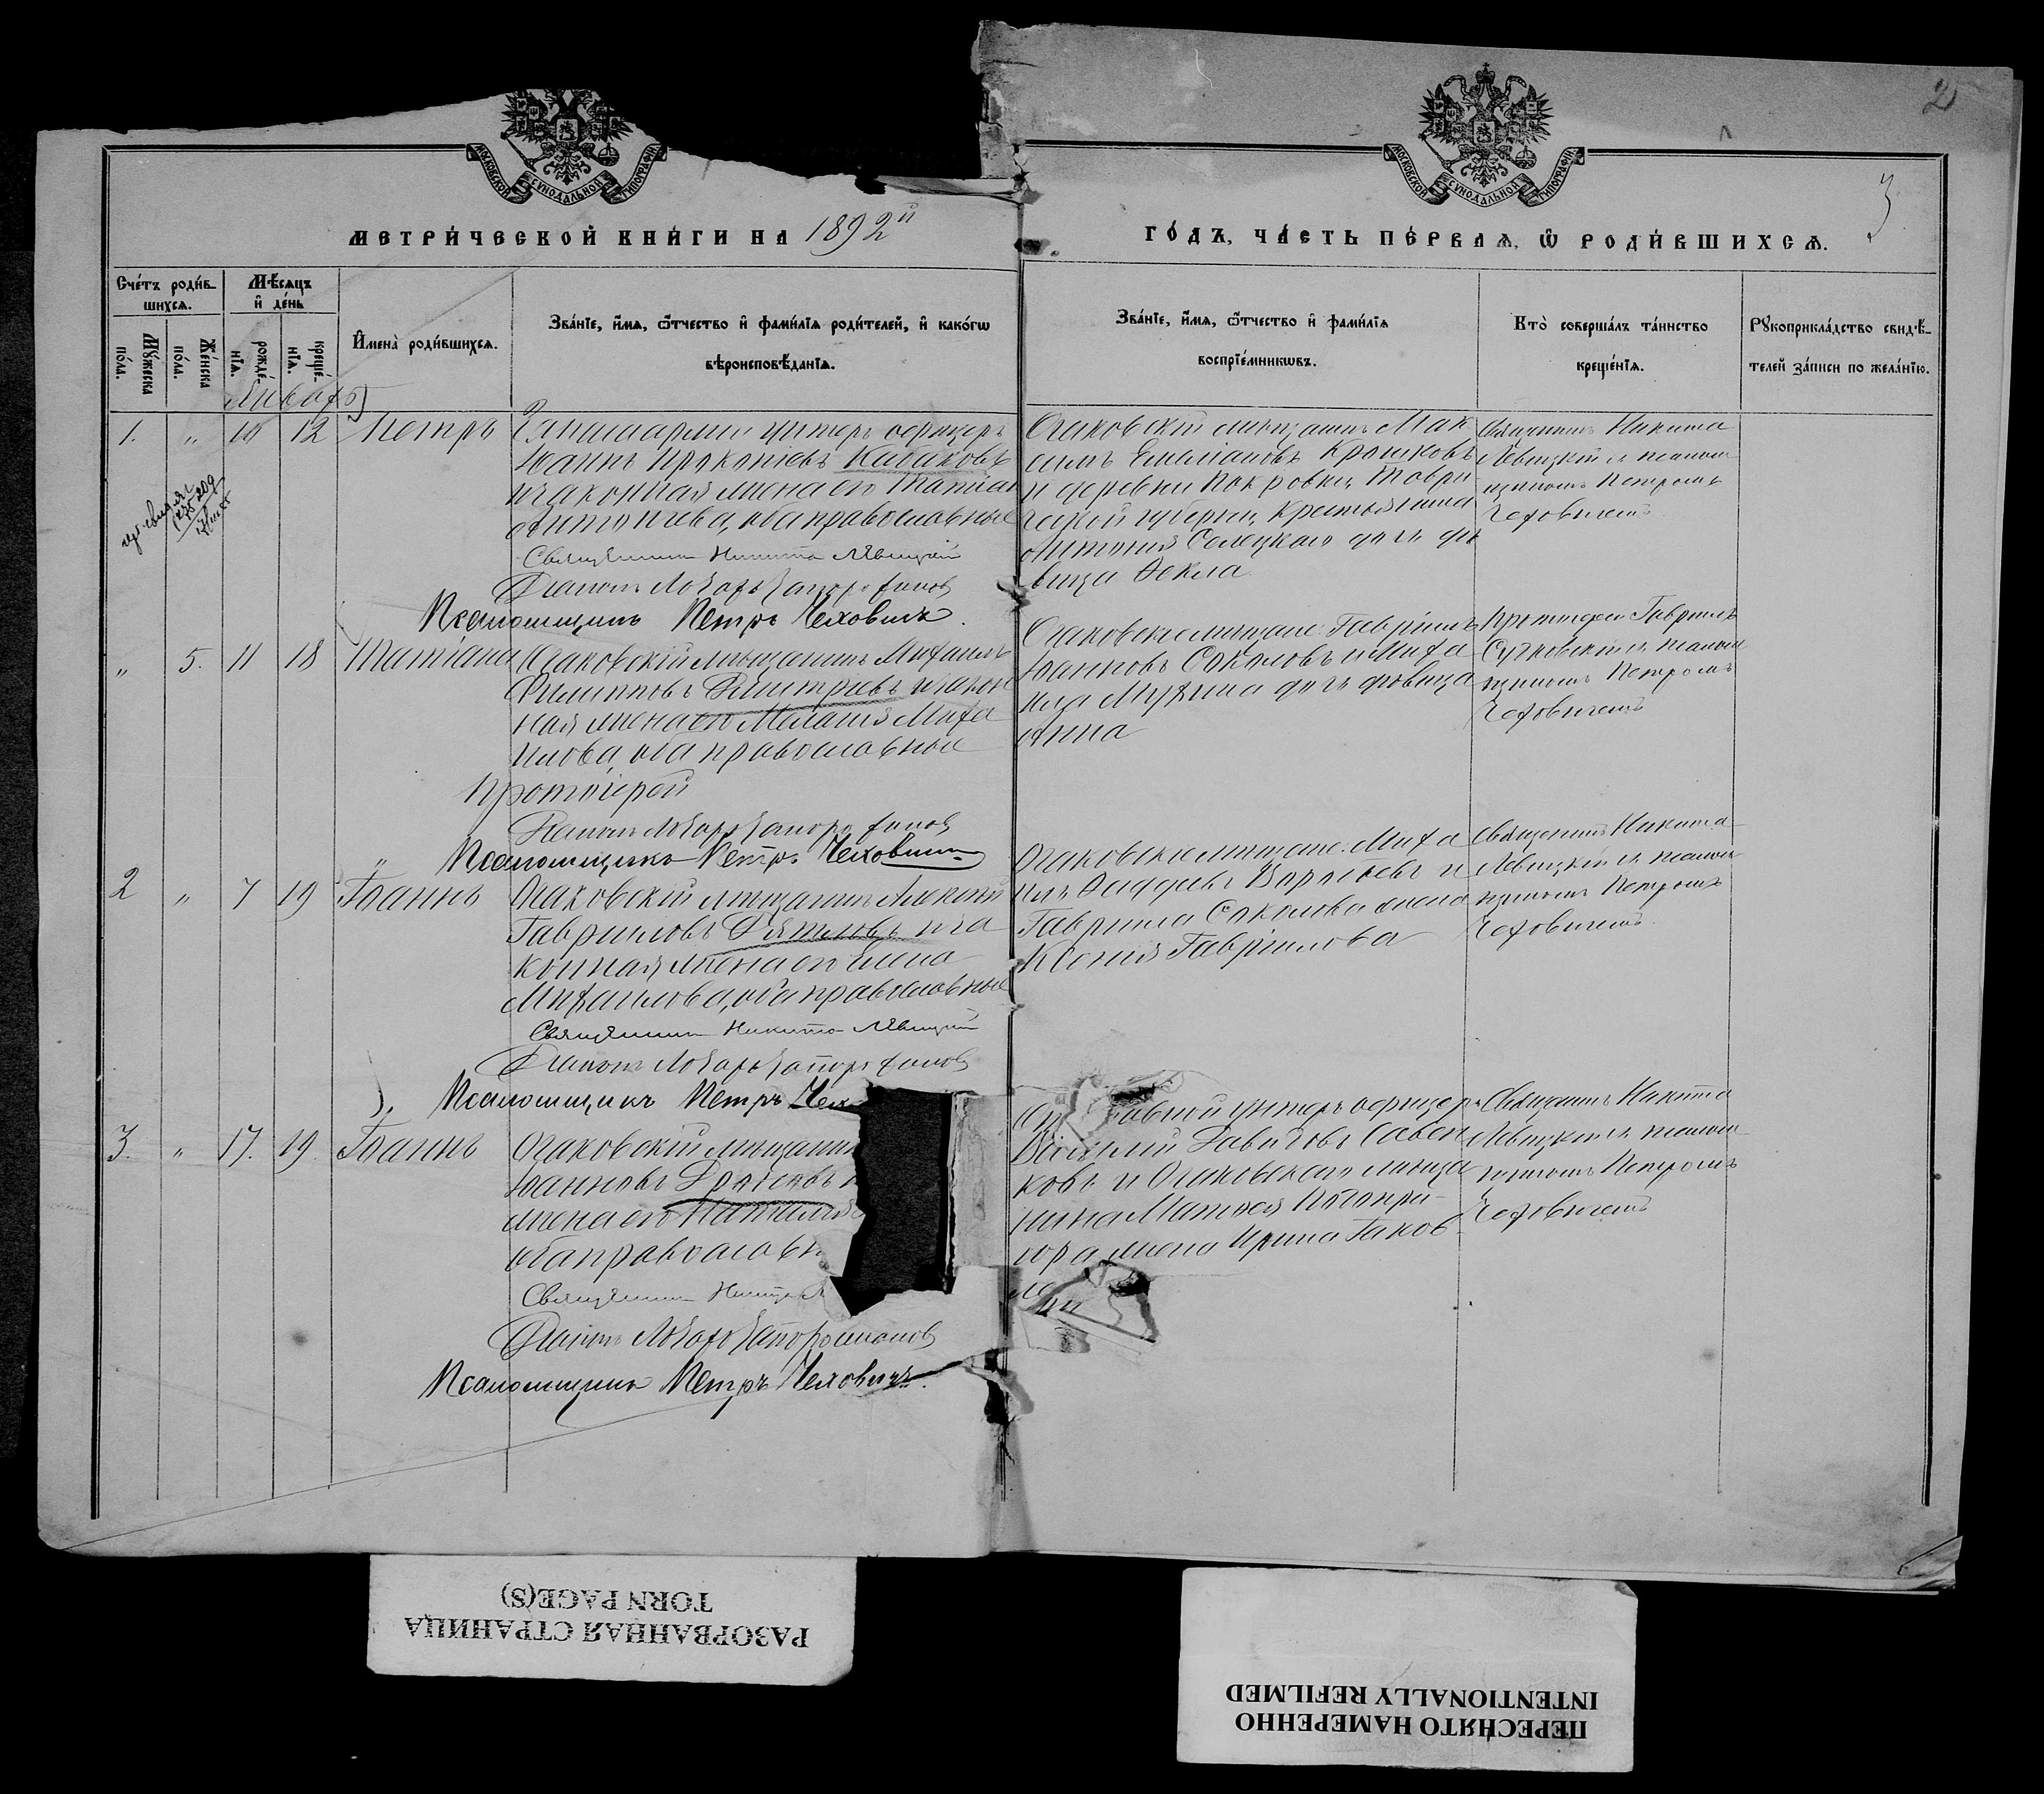 2
3
МОСКОВСКОЙ СѴНОДАЛЬНОЙ ТИПОГРАФІИ
МОСКОВСКОЙ СѴНОДАЛЬНОЙ ТИПОГРАФІИ
МЕТРИ́ЧЕСКОЙ КНИ́ГИ НА 1892й
ГО́ДЪ, ЧА́СТЬ ПЕ́РВАѦ, Ѡ҆ РОДИ́ВШИХСѦ.
Сче́тъ роди́в-
шихсѧ.
Мꙋ́жеска
по́ла.
Же́нска
по́ла.
Мѣ́сяцъ
и҆ де́нь
рожде́-
нїѧ.
креще́-
нїѧ.
И҆мена̀ роди́вшихсѧ.
Зва́нїе, и҆́мѧ, ѻ҆́тчество и҆ фами́лїѧ роди́телей, и҆ како́гѡ
вѣроисповѣ́данїѧ.
Зва́нїе, и҆́мѧ, ѻ҆́тчество и҆ фами́лїѧ
воспрїе́мникѡвъ.
Кто̀ соверша́лъ та́инство
креще́нїѧ.
Рꙋкоприкла́дство свидѣ́-
телей за́писи по жела́нїю.
Январь
1. " 10 12 Петръ
унтеръ офицеръ
Іоаннъ Прокопіевъ Кабаковъ
и законная жена его Татіана
Антоніева, оба православные
Священникъ Никита Лѣвицкій
Діаконъ
Псаломщикъ Петръ Чеховичъ.
Очаковскій мѣщанинъ Мак
симъ Емеліановъ Крошковъ
и деревни Покровки, Таври
ческой губерніи, крестьянина
Антонія Селецкаго дочь дѣ
вица Ѳекла
Священникъ Никита
Лѣвицкій и псалом
щикомъ Петромъ
Чеховичемъ
" 5. 11 18 Татіана
Очаковскій мѣщанинъ Михаилъ
Филипповъ Дмитріевъ и закон
ная жена его Меланія Миха
илова, оба православные
Протоіерей
Діаконъ
Псаломщикъ Петръ Чеховичъ
Очаковскіе мѣщане: Гавріилъ
Іоанновъ Соколовъ и Миха
ила дочь дѣвица
Анна
Протоіерей Гавріилъ
Сучковскій и псалом
щикомъ Петромъ
Чеховичемъ
2 " 7 19 Іоаннъ
Очаковскій мѣщанинъ Алексій
Гавриловъ и за
конная жена его Елена
Михаилова, оба православные
Священникъ Никита Лѣвицкій
Діаконъ
Псаломщикъ Петръ Чехо
Очаковскіе мѣщане: Миха
илъ Ѳаддеевъ и
Гавріила Соколова жена
Ксенія Гавріилова
Священникъ Никита
Лѣвицкій и псалом
щикомъ Петромъ
Чеховичемъ
3. " 17. 19. Іоаннъ
Очаковскій мѣщанин
Іоанновъ
жена его Наталія
оба православн
Священникъ Никита Л
Діаконъ
Псаломщикъ Петръ Чеховичъ.
унтеръ офицеръ
Василій Давидовъ Савен
ковъ и Очаковскаго мѣща
нина Матѳея
жена Ирина Іаков
Священникъ Никита
Лѣвицкій и псалом
щикомъ Петромъ
Чеховичемъ
РАЗОРВАННАЯ СТРАНИЦА
TORN PAGE(S)
ПЕРЕСНЯТО НАМЕРЕННО
INTENTIONALLY REFILMED